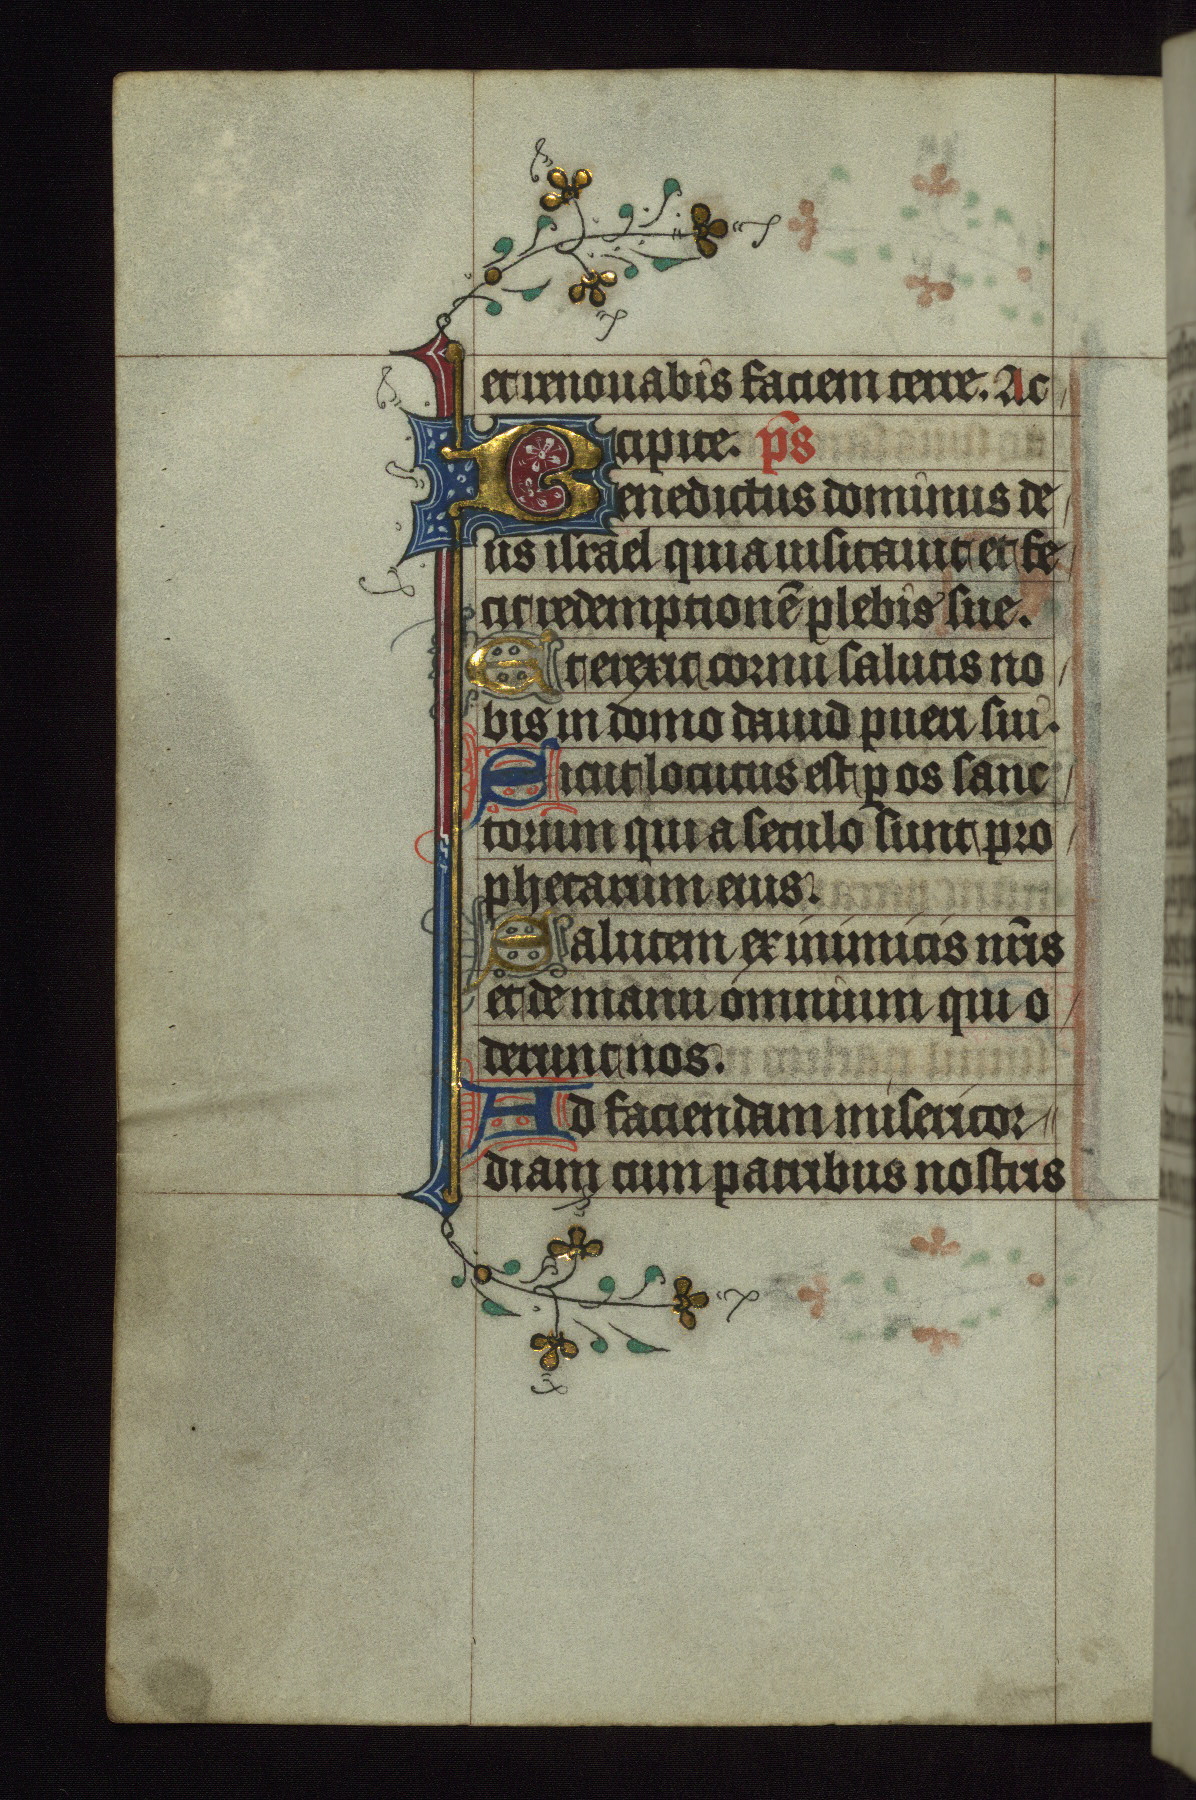 et renouabis faciem terre. Ac
cipite. p̄s
Benedictus dominus de
us israel quia uisitauit et fe
cit redemptionē plebis sue.
Et erexit cornu salutis no
bis in domo dauid pueri sui.
Sicut locutus est p os sanc
torum qui a seculo sunt pro
phetarum eius.
Salutem ex inimicis nr̄is
et de manu omnium qui o
derunt nos.
Ad faciendam misericor
diam cum patribus nostris